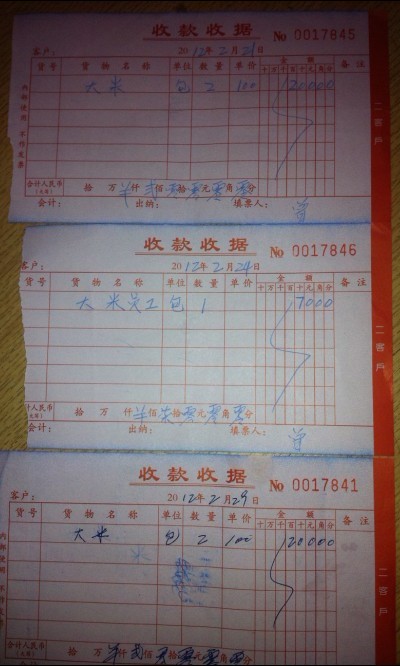 收款收据 No 0017845
客户： 2012年2月21日
货号 货物名称 单位 数量 单价 金额 备注
十万千百十元角分
大米 包 2 100 20000
合计人民币(大写) 拾 万 仟 贰佰零拾零元零角零分
会计： 出纳： 填票人：
内部使用 不作发票
二客户
收款收据 No 0017846
客户： 2012年2月24日
货号 货物名称 单位 数量 单价 金额 备注
十万千百十元角分
大米员工 包 1 17000
计人民币(大写) 拾 万 仟 佰 拾零元零角零分
会计： 出纳： 填票人：
二客户
收款收据 No 0017841
客户： 2012年2月29日
货号 货物名称 单位 数量 单价 金额 备注
十万千百十元角分
大米 包 2 100 20000
合计人民币(大写) 拾 万 仟贰佰零拾零元零角零分
内部使用 不作发票
二客户